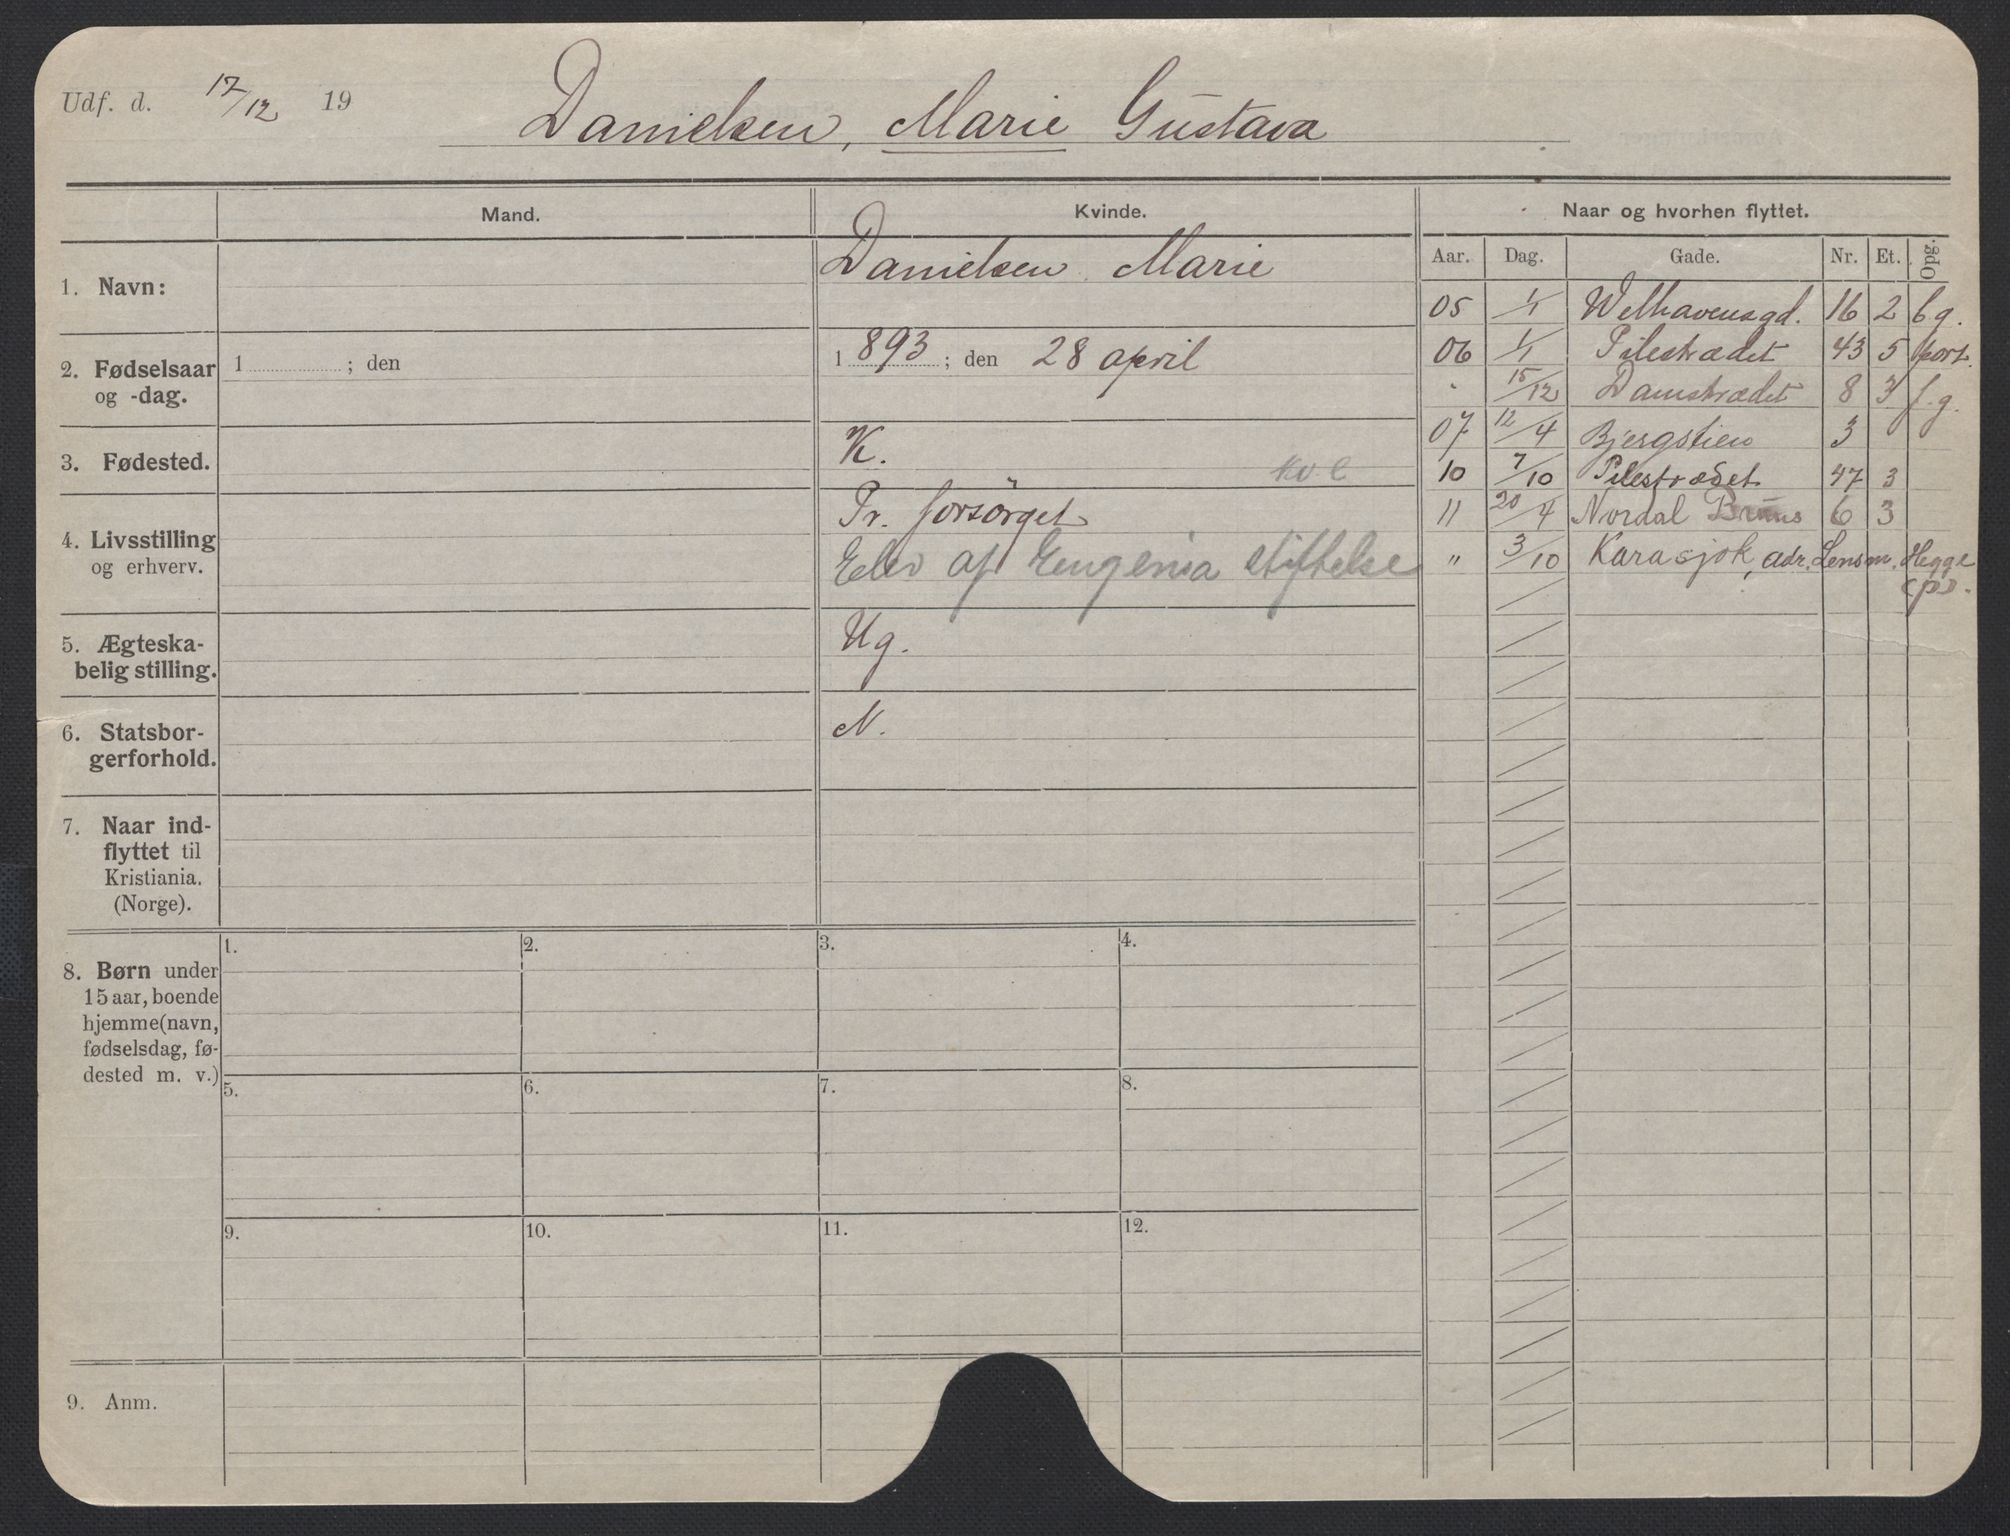 Udf. d. 17/12 19
Danielsen, Marie Gustava
Mand.
Kvinde.
Naar og hvorhen flyttet.
Aar. Dag. Gade. Nr. Et. Opg.
1. Navn:
Danielsen Marie
2. Fødselsaar
og -dag.
1 ; den
1893 ; den 28 april
3. Fødested.
K.
4. Livsstilling
og erhverv.
Pr. forsörget
Elev af Eugenia stiftelse
5. Ægteska-
belig stilling.
Ug.
6. Statsbor-
gerforhold.
N.
7. Naar ind-
flyttet til
Kristiania.
(Norge).
8. Børn under
15 aar, boende
hjemme (navn,
fødselsdag, fø-
dested m. v.)
1. 2. 3. 4.
5. 6. 7. 8.
9. 10. 11. 12.
9. Anm.
05 1/1 Welhavensgd. 16 2 b.g.
06 1/1 Pilestrædet 43 5 port.
" 15/12 Damstrædet 8 3 f.g.
07 12/4 Bjergstien 3
10 7/10 Pilestrædet 47 3
11 20/4 Nordal Bruns 6 3
" 3/10 Karasjok, adr. Lensm. Hegge
(p).